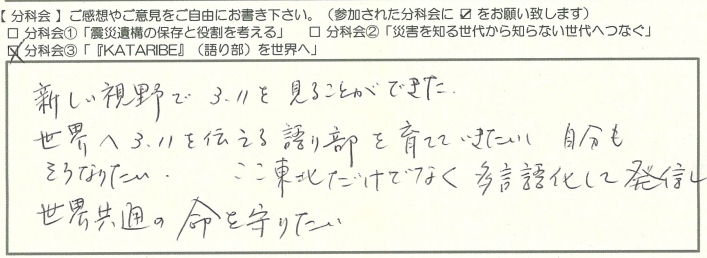 【 分科会 】 ご感想やご意見をご自由にお書き下さい。（参加された分科会に ☑ をお願い致します）
□ 分科会①「震災遺構の保存と役割を考える」 □ 分科会②「災害を知る世代から知らない世代へつなぐ」
☒ 分科会③「『KATARIBE』（語り部）を世界へ」
新しい視野で 3.11を 見ることができた.
世界へ 3.11を伝える 語り部 を 育てていきたいし 自分も
そうなりたい. ここ東北だけでなく 多言語化して 発信し
世界共通の 命を守りたい